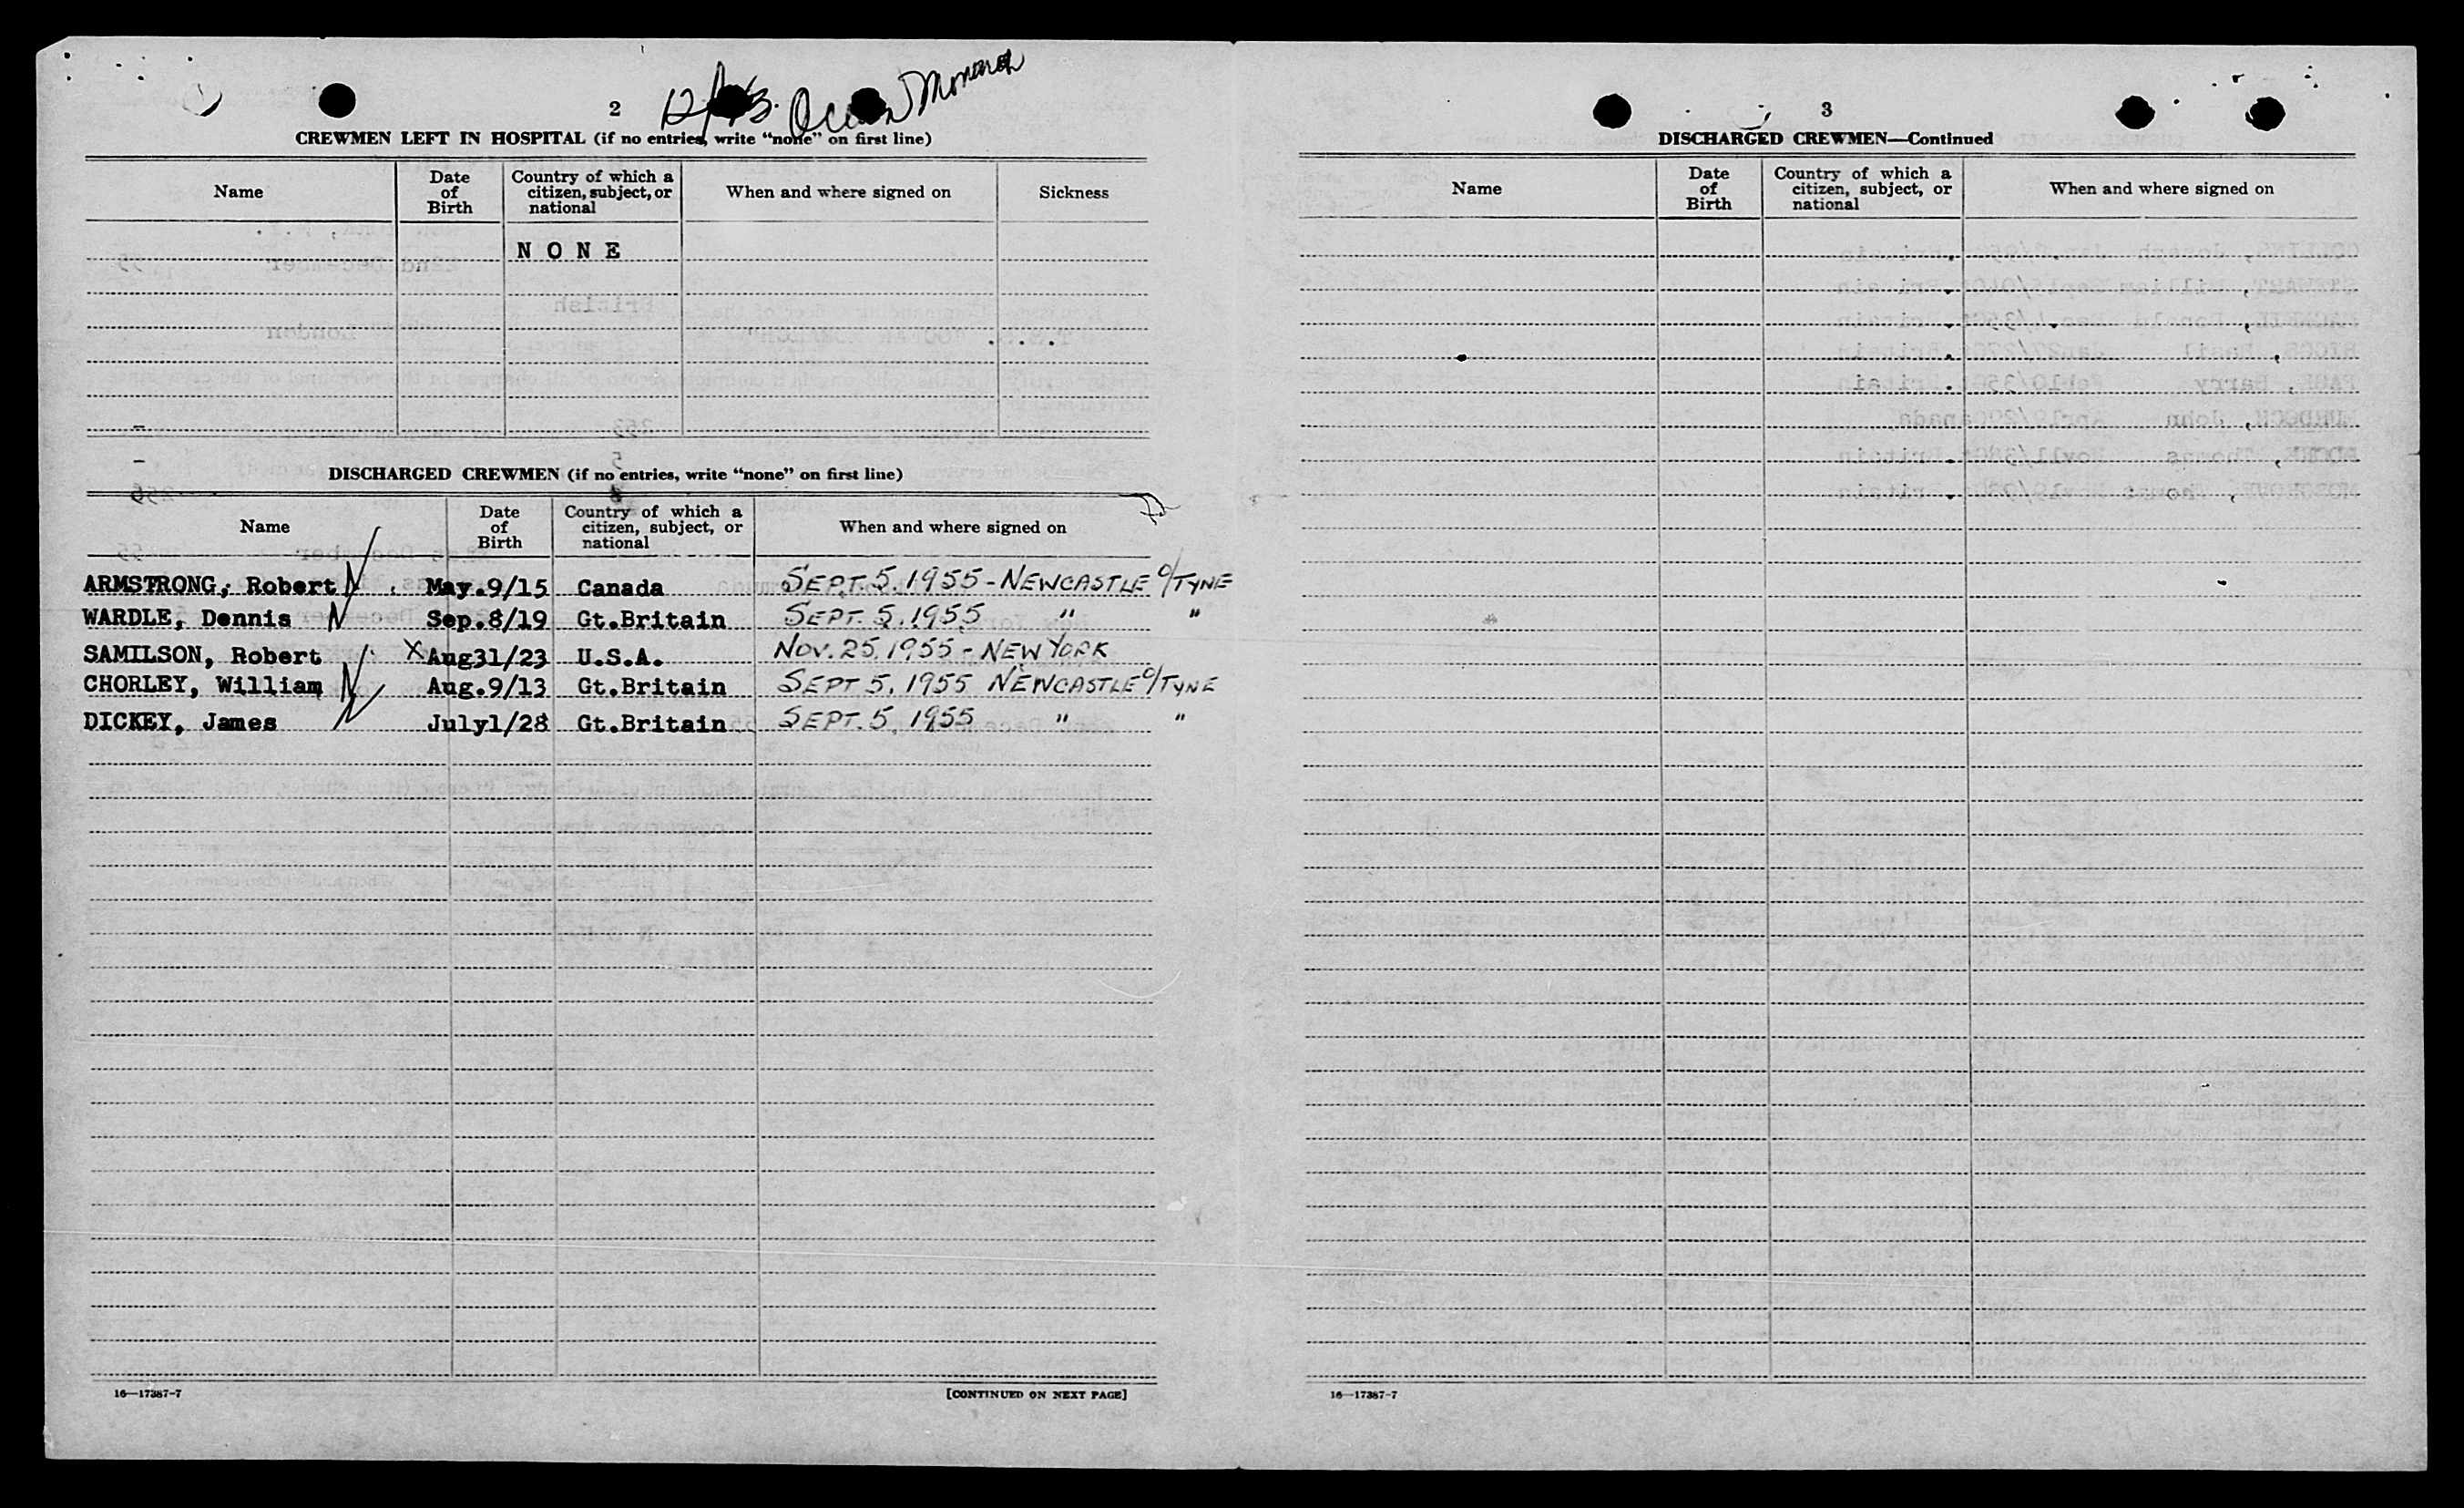 2
Ocean Monarch
CREWMEN LEFT IN HOSPITAL (if no entries, write "none" on first line)
Name
Date of Birth
Country of which a citizen, subject, or national
When and where signed on
Sickness
N O N E
DISCHARGED CREWMEN (if no entries, write "none" on first line)
Name
Date of Birth
Country of which a citizen, subject, or national
When and where signed on
ARMSTRONG, Robert May.9/15 Canada SEPT. 5. 1955 - NEWCASTLE O/TYNE
WARDLE, Dennis Sep.8/19 Gt.Britain SEPT. 5. 1955 " "
SAMILSON, Robert X Aug31/23 U.S.A. NOV. 25. 1955 - NEW YORK
CHORLEY, William Aug.9/13 Gt.Britain SEPT 5. 1955 NEWCASTLE O/TYNE
DICKEY, James July1/28 Gt.Britain SEPT. 5. 1955 " "
16—17387-7
[CONTINUED ON NEXT PAGE]
3
DISCHARGED CREWMEN—Continued
Name
Date of Birth
Country of which a citizen, subject, or national
When and where signed on
16—17387-7